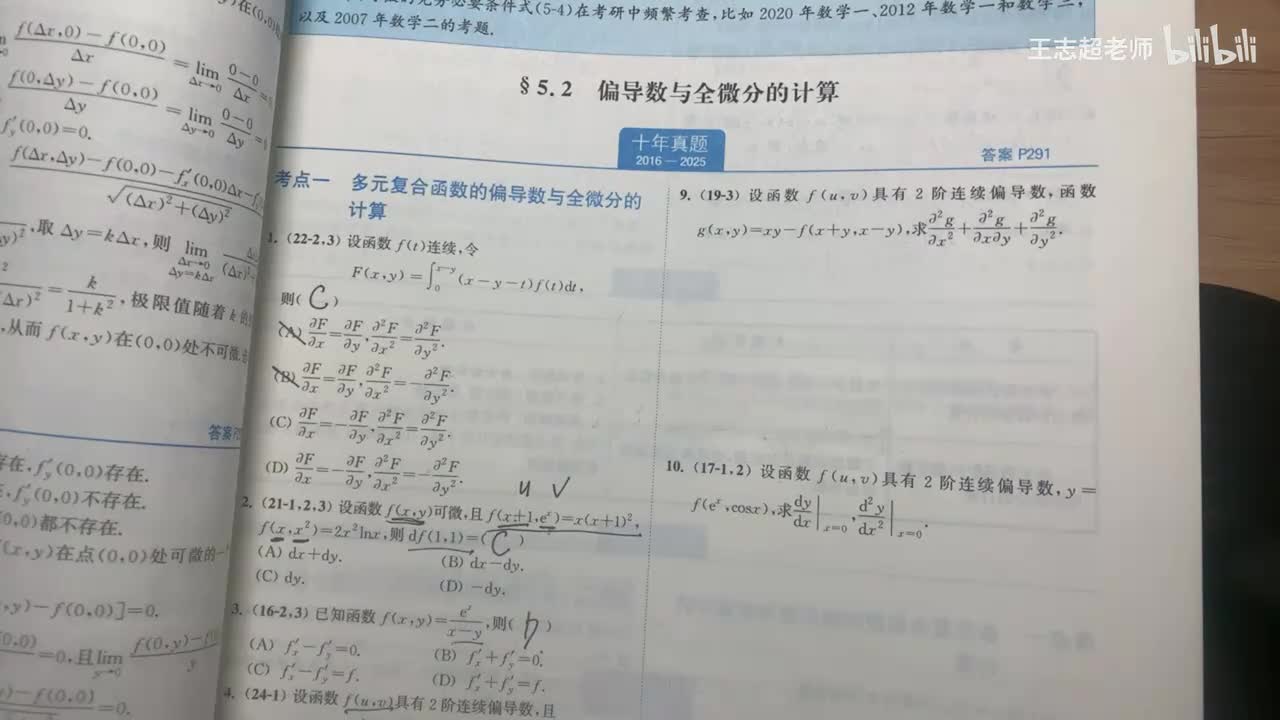 的充分必要条件式(5-4)在考研中频繁考查,比如 2020 年数学一、2012 年数学一和数学三,
以及 2007 年数学二的考题.
王志超老师 bilibili
§5.2 偏导数与全微分的计算
十年真题
2016—2025
答案 P291
考点一 多元复合函数的偏导数与全微分的
计算
1. (22-2,3) 设函数 f(t)连续,令
F(x,y)=∫₀^{x−y}(x−y−t)f(t)dt,
则( C )
(A) ∂F/∂x=∂F/∂y,∂²F/∂x²=∂²F/∂y².
(B) ∂F/∂x=∂F/∂y,∂²F/∂x²=−∂²F/∂y².
(C) ∂F/∂x=−∂F/∂y,∂²F/∂x²=∂²F/∂y².
(D) ∂F/∂x=−∂F/∂y,∂²F/∂x²=−∂²F/∂y².
u v
2. (21-1,2,3) 设函数 f(x,y)可微,且 f(x+1,eˣ)=x(x+1)²,
f(x,x²)=2x²lnx,则 df(1,1)=( C )
(A) dx+dy. (B) dx−dy.
(C) dy. (D) −dy.
3. (16-2,3) 已知函数 f(x,y)=eˣ/(x−y),则( D )
(A) f′ₓ−f′ᵧ=0. (B) f′ₓ+f′ᵧ=0.
(C) f′ₓ−f′ᵧ=f. (D) f′ₓ+f′ᵧ=f.
4. (24-1) 设函数 f(u,v)具有 2 阶连续偏导数,且
9. (19-3) 设函数 f(u,v)具有 2 阶连续偏导数,函数
g(x,y)=xy−f(x+y,x−y),求∂²g/∂x²+∂²g/∂x∂y+∂²g/∂y².
10. (17-1,2) 设函数 f(u,v)具有 2 阶连续偏导数,y=
f(eˣ,cosx),求dy/dx|ₓ₌₀,d²y/dx²|ₓ₌₀.
f(Δx,0)−f(0,0)/Δx=lim Δx→0 0−0/Δx
f(0,Δy)−f(0,0)/Δy=lim Δy→0 0−0/Δy
f′ᵧ(0,0)=0.
√(Δx)²+(Δy)²
,取 Δy=kΔx,则 lim Δx→0 Δy=kΔx
=k/1+k²,极限值随着 k 的
,从而 f(x,y)在(0,0)处不可微.
存在,f′ᵧ(0,0)存在.
f′ᵧ(0,0)不存在.
(0,0)都不存在.
(x,y)在点(0,0)处可微的一
,y)−f(0,0)]=0.
=0,且lim y→0 f(0,y)−f
)−f(0,0)=0.